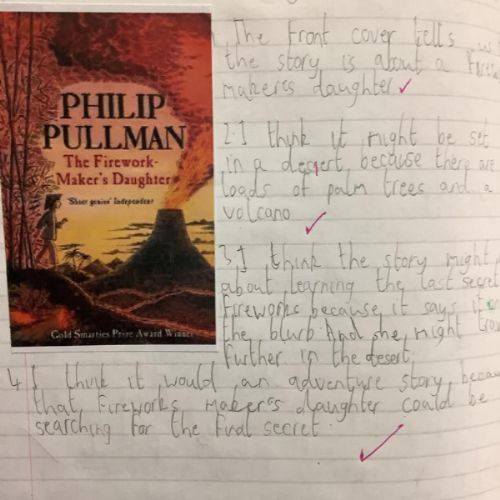 PHILIP
PULLMAN
The Firework-
Maker's Daughter
'Sheer genius' Independent
Gold Smarties Prize Award Winner
The Front cover tells us
the story is about a Fire
maker's daughter
2. I think it might be set
in a desert because there are
loads of palm trees and a
volcano
3 I think the story might
about learning the last secret
fireworks because it says it
the blurb And she might
further in the desert.
4 I think it would an adventure story, becau
that fireworks maker's daughter could be
searching for the final secret.